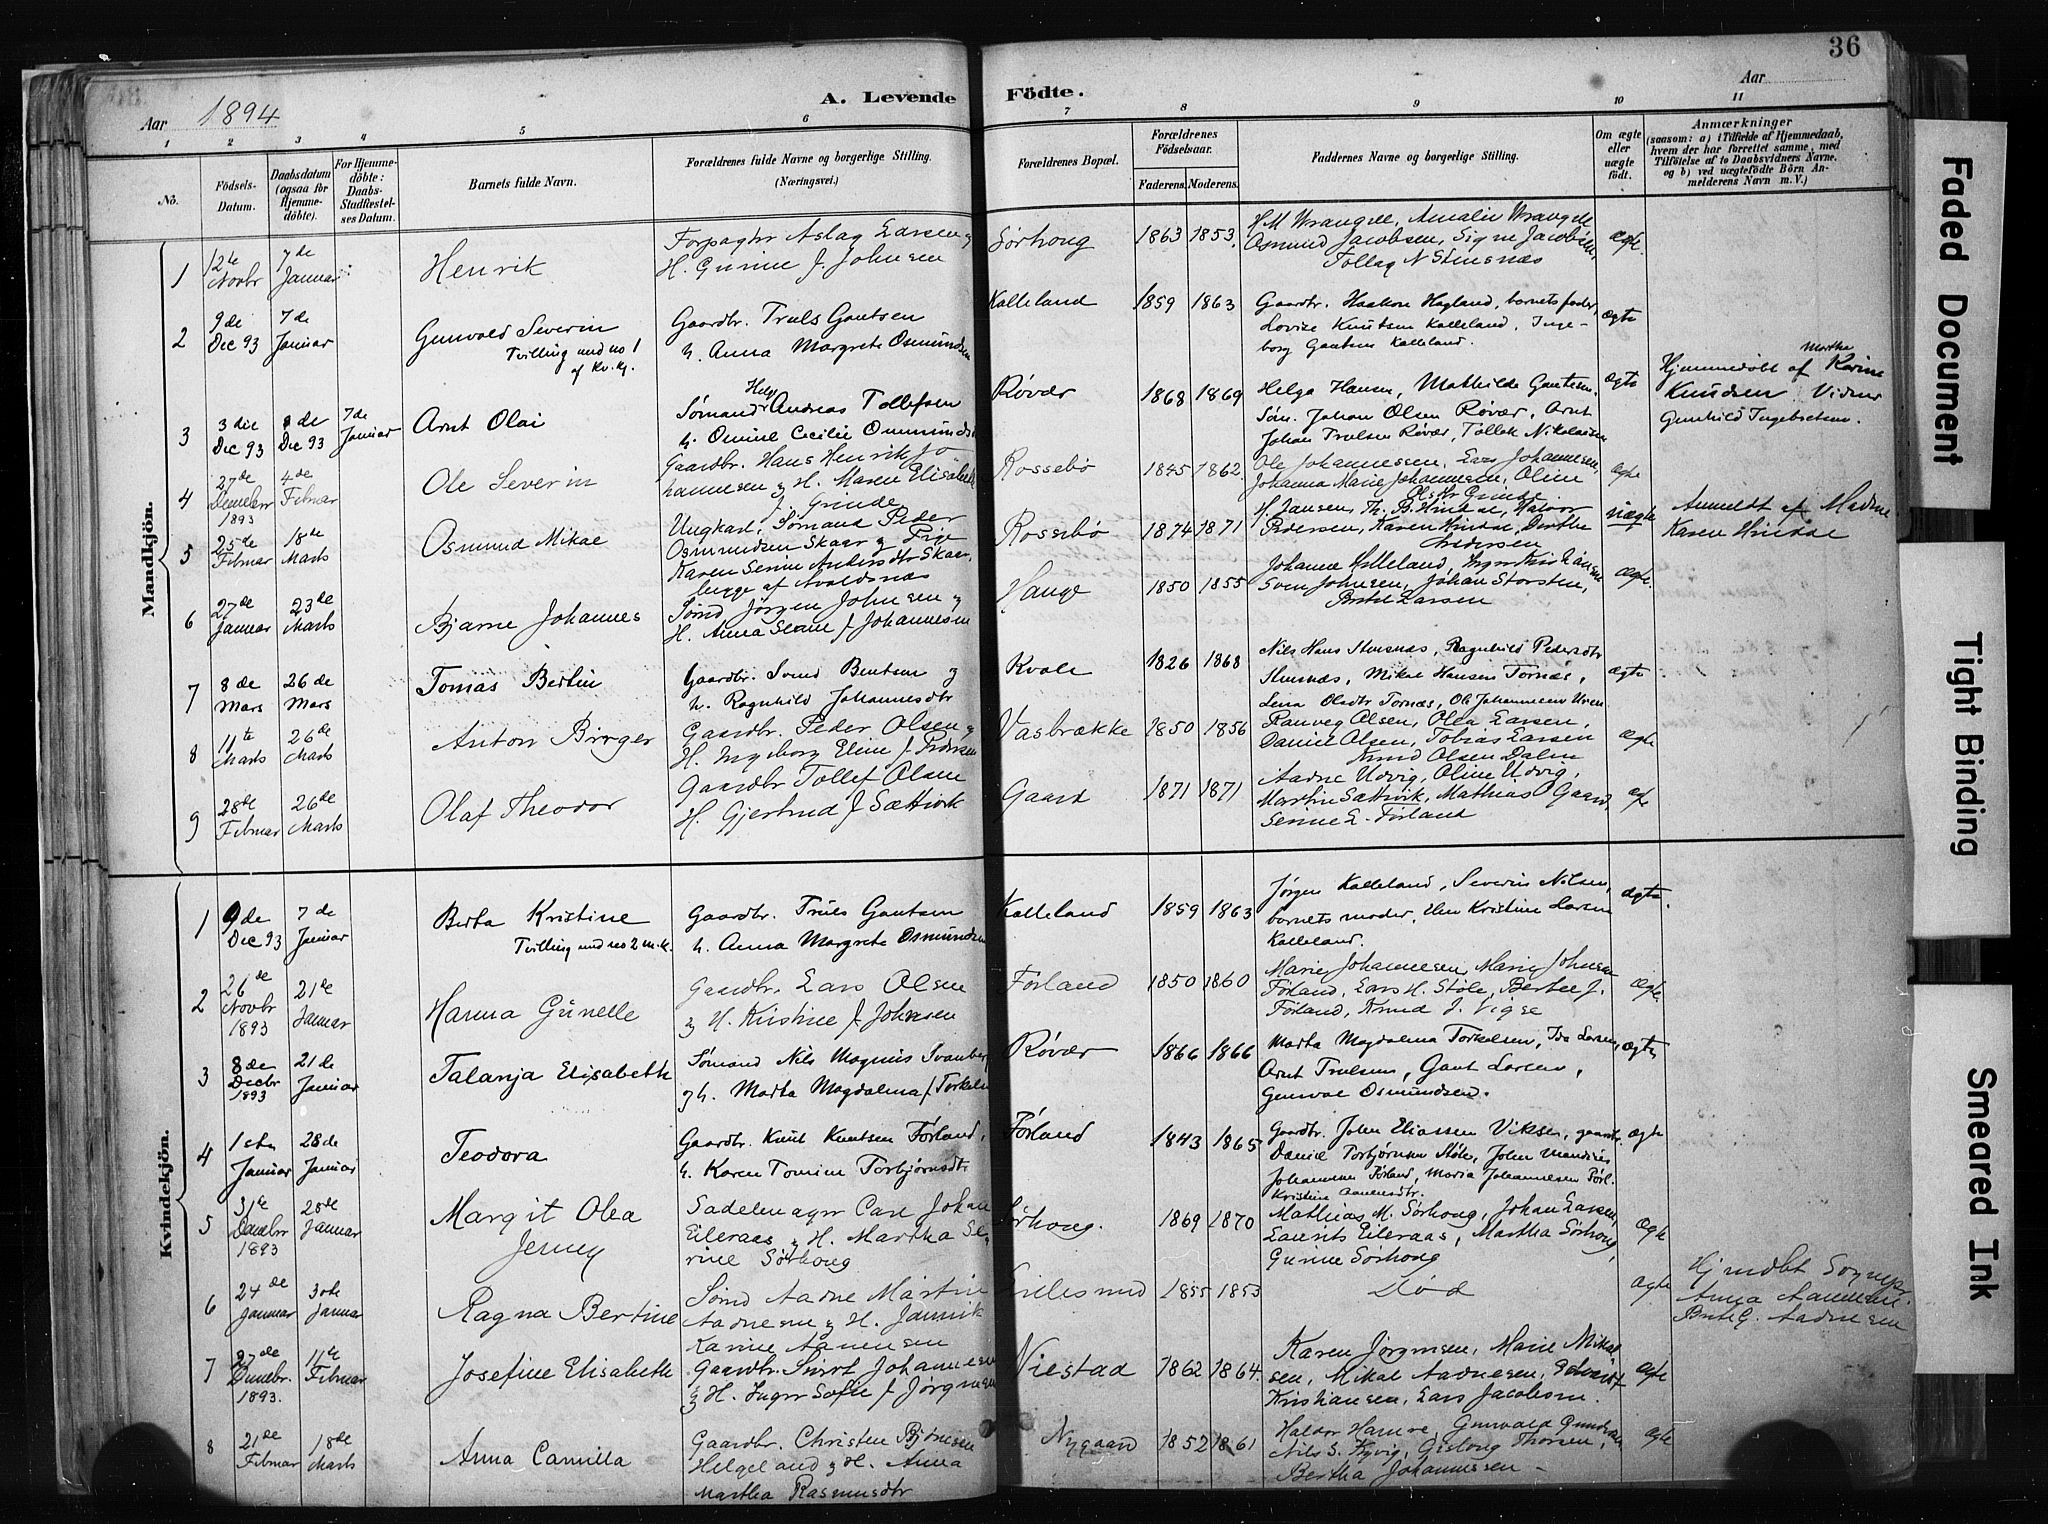 36
Aar 1894
A. Levende Födte.
Aar
1 2 3 4 5 6 7 8 9 10 11
No.
Födsels-Datum.
Daabsdatum (ogsaa for Hjemmedöbte).
For Hjemmedöbte: Daabs-Stadfæstelses Datum.
Barnets fulde Navn.
Forældrenes fulde Navne og borgerlige Stilling. (Næringsvei.)
Forældrenes Bopæl.
Forældrenes Födselsaar.
Faderens. Moderens.
Faddernes Navne og borgerlige Stilling.
Om ægte eller uægte födt.
Anmærkninger
(saasom: a) i Tilfælde af Hjemmedaab, hvem der har forrettet samme, med Tilföielse af to Daabsvidners Navne, og b) ved uægtefödte Börn Anmelderens Navn m. V.)
Mandkjön.
1 12te Novbr 7de Januar Henrik
Forpagtr Aslag Larsen &
H. Gurine J. Johnsen
Sørhoug 1863 1853.
H M Wrangell, Amalie Wrangell
Osmund Jacobsen, Signe Jacobsen,
Tollag N Stensnæs
ægte.
2 9de Dec 93 7de Januar Gunvald Severin
Tvilling med no 1 af Kv. kj.
Gaardbr. Truls Gautsen
h. Anna Margrete Osmundsen
Kalleland 1859 1863
Gaardbr. Haakon Hagland, barnets fader,
Lovise Knutsen Kalleland, Inge-
borg Gautsen Kalleland.
ægte
3 3die Dec 93 de Dec 93 7de Januar Arnt Olai
Sømand Helge Andreas Tollefsen
h. Omine Cecilie Ommundsd
Røvær 1868 1869
Helga Hansen, Mathilde Gautesen
Søn. Johan Olsen Røvær, Arnt
Johan Trulsen Røvær, Tollak Nikolaisen
ægte
Hjemmedøbt af Marthe Karine
Knudsen Vidner
Gunhild Ingebretsen.
4 27de Decebr 1893 4de Februar Ole Severin
Gaardbr. Hans Henrik Jo-
hannesen & H. Maren Elisabeth
J. Grinde
Rossebø 1845 1862.
Ole Johannesen, Lars Johannesen,
Johanna Marie Johannesen, Oline
Olsdtr Grinde.
ægte
5 25de Februar 18de Marts Osmund Mikal
Ungkarl, Sømand Peder
Osmundsen Skaar & Pige
Karen Serine Andersdtr Skaar
begge af Avaldsnæs
Rossebø 1874 1871
H. Jansen, Th. B. Hindal, Halvor
Pedersen, Karen Hindal, Dorthe
Andersen
uægte
Anmeldt af Madme
Karen Hindal
6 27de Januar 23de Marts Bjarne Johannes
Sømd Jørgen Johnsen &
H. Anna Seane J. Johannesen
Hauge 1850 1855
Sven Johnsen, Johan Storsten,
Bertel Larsen
ægte.
7 8de Mars 26de Mars Tomas Bertin
Gaardbr. Svend Bentsen &
h. Ragnhild Johannesdtr
Kvale 1826 1868
Nils Hans Stensnæs, Ragnhild Pedersdtr
Stensnæs, Mikal Hansen Tornæs,
Lena Olsdtr Tornæs, Ole Johannesen
ægte
8 11te Marts 26de Marts Anton Birger
Gaardbr. Peder Olsen &
H. Ingeborg Eline J. Pedersen
Vasbrække 1850 1856
Ranveg Olsen, Olea Larsen,
Daniel Olsen, Tobias Larsen
Knud Olsen Dalen
ægte
9 28de Februar 26de Marts Olaf Theodor
Gaardbr Tollef Olsen
H. Gjertrud J Sættevik
Gaard 1871 1871
Aadne Udvig, Oline Udvig,
Martin Sættevik, Mathias O Gaard,
Serine E. Førland
ægte
Kvindekjön.
1 9de Dec 93 7de Januar Berta Kristine
Tvilling med no 2 m. k.
Gaardbr. Truls Gautsen
h. Anna Margrete Osmundsen
Kalleland 1859 1863
Jørgen Kalleland, Severin Nilsen,
barnets moder, Elen Kristine Larsen
Kalleland.
ægte.
2 26de Novbr 1893 21de Januar Hanna Gunelle
Gaardbr. Lars Olsen
& H. Kristine J. Johnsen
Førland 1850 1860
Marie Johannesen, Marie Johnsen
Førland, Lars H. Støle, Bertel J.
Førland, Knud J. Vigse
ægte.
3 8de Decbr 1893 21de Januar Talanja Elisabeth
Sømand Nils Magnus Svanberg
& h. Marta Magdalena J. Torkels
Røvær 1866 1866
Marta Magdalena Torkelsen, Ida Larsen,
Arnt Trulsen, Gaut Larsen,
Gunvald Osmundsen.
ægte
4 1ste Januar 28de Januar Teodora
Gaardbr. Knut Knutsen Førland,
h. Karen Tomine Torbjørnsdtr
Førland 1843 1865
Gaardbr. John Eliassen Viksen, gaardbr.
Daniel Torbjørnsen Støle, John Mandius
Johannessen Førland, Maria Johannesen Førl.
Kristine Aanensdtr.
ægte
5 31te Decebr 1893 28de Januar Margit Olea
Jenny
Sadelmagr Carl Johan
Eileraas & H. Martha Se-
rine Sørhoug
Sørhoug. 1869 1870
Mathias M. Sørhoug, Johan Larsen,
Laurits Eileraas, Martha Sørhoug,
Gurine Sørhoug
ægte
6 24de Januar 30te Januar Ragna Bertine
Sømd Aadne Martin
Aadnesen & H. Jannik
Karine Aanensen
Lillesund 1855 1853
Død
ægte
Hjmdbt Sognepr.
Anna Aanensen
Brite G. Aadnesen
7 27de Decebr. 1893. 11te Februar Josefine Elisabeth
Gaardbr. Sivert Johannesen
& H. Inger Sofie J. Jørgensen
Viestad 1862 1864.
Karen Jørgensen, Marie Mikal-
sen, Mikal Aadnesen, Edvardt
Kristiansen, Lars Jacobsen.
ægte
8 21de Februar 18de Marts Anna Camilla
Gaardbr. Christen Bjørnesen
Helgeland & H. Anna
Martha Rasmusdtr
Nygaard 1852 1861
Halvor Hamre, Gunvald Gundersen
Nils S. Hyvig, Gislaug Thorsen,
Bertha Johannessen -
ægte
Faded Document
Tight Binding
Smeared Ink